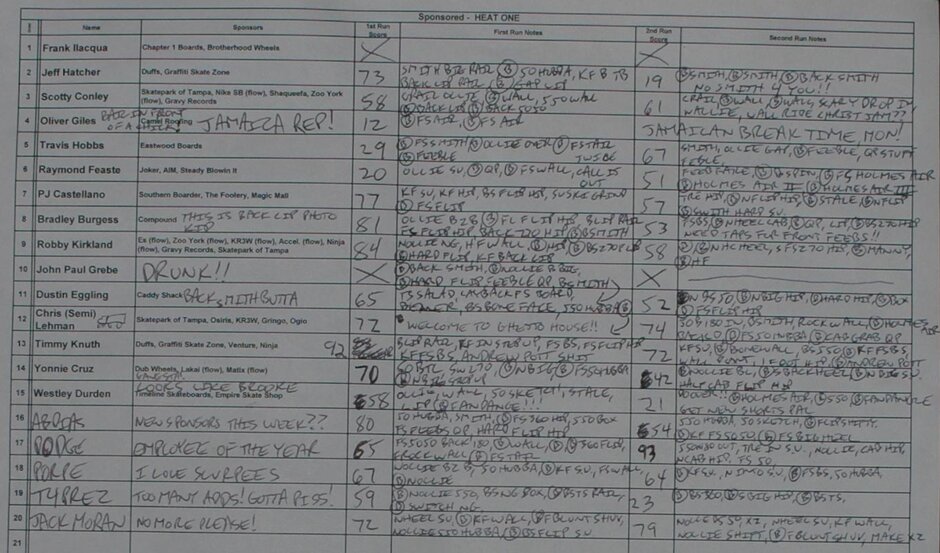 Sponsored - HEAT ONE
Name Sponsors 1st Run Score First Run Notes 2nd Run Score Second Run Notes
1 Frank Ilacqua Chapter 1 Boards, Brotherhood Wheels X X
2 Jeff Hatcher Duffs, Graffiti Skate Zone 73 SMITH BIG RAIL (B) 50 HUBBA, KFB TB 19 (B) SMITH, (B) SMITH, (B) BACK SMITH
BACK LIP RAIL, (B) GAP LIP NO SMITH 4 YOU!!
3 Scotty Conley Skatepark of Tampa, Nike SB (flow), Shaqueefa, Zoo York (flow), Gravy Records 58 CRAIL OLLIE (B) WALL, 550 WALL 61 CRAIL (B) WALL (B) WALL, SCARY DROP IN,
(B) BACK LIP (B) BACK 5050 WALLIE, WALL RIDE CHRIST JAM??
4 Oliver Giles RAIL IN FRONT OF A CHICK! JAMAICA REP! 12 (B) FS AIR, (B) FS AIR JAMAICAN BREAK TIME, MON!
5 Travis Hobbs Eastwood Boards 29 (B) FS SMITH (B) OLLIE OVER (B) FS TAIL 67 SMITH, OLLIE GAP, (B) FEEBLE, QP STUFF
(B) FEEBLE FEBLE,
6 Raymond Feaste Joker, AIM, Steady Blowin It 20 OLLIE SU, (B) QP, (B) WALL, CALL IT 51 (B) BS SPIN, (B) FS HOLMES AIR
IS OUT (B) HOLMES AIR II (B) HOLMES AIR III
7 PJ Castellano Southern Boarder, The Foolery, Magic Mall 77 KF SU, KF HIP, BS FLIP HIP, SUSKI GRIND 57 TRE HIP, (B) NFLIP HIP, (B) STALE, (B) NFLIP
(B) FS FLIP (B) SWITH HARD SU
8 Bradley Burgess Compound THIS IS BACK LIP PHOTO KID 81 OLLIE B2B (B) FL FLIP HIP, BLIP RAIL 53 (B) NHEEL CAB (B) QP, LIP, (B) BS 270 HIP
FS FLIP HIP, BACK 720 HIP (B) BSMITH NEED TAPS FUR FRONT FEEBS!!
9 Robby Kirkland Es (flow), Zoo York (flow), KR3W (flow), Accel. (flow), Ninja (flow), Gravy Records, Skatepark of Tampa 84 NOLLIE NG, HF WALL, (B) HIP (B) BS 270 LIP 58 (B) NHCHEEL, SFS 270 HIP, (B) MANNY
(B) HARD FLIP, KF BACK LIP (B) HF
10 John Paul Grebe DRUNK!! X (B) BACK SMITH, (B) NOLLIE B BIG, X
(B) HARD FLIP, FEEBLE QP, BSMITH
11 Dustin Eggling Caddy Shack BACK SMITH BUTTA 65 TJ SALAD, LAYBACK FS BOARD 52 (B) N BS 50, (B) N BIG HIP, (B) HARD HIP, (B) BOX
BS BONE FACE, 550 HUBBA (B) (B) FS FLIP HIP
12 Chris (Semi) Lehman Skatepark of Tampa, Osiris, KR3W, Gringo, Ogio 72 WELCOME TO GHETTO HOUSE!! 74 50 B 180 IN, BSMITH, ROCK WALL, (B) HOLMES AIR
(B) FS 50 HUBBA (B) CAB GRAB QP
13 Timmy Knuth Duffs, Graffiti Skate Zone, Venture, Ninja 92 BLIP RAIL, KF IN STEP UP, FS BS, FS FLIP HIP 72 KF SU, (B) BONE WALL, BS 550 (B) KF FS BS,
KF FS BS, ANDREW POTT SHIT WALL, (B) ANDREW POTT
14 Yonnie Cruz Dub Wheels, Lakai (flow), Matix (flow) 70 (B) N BIG (B) FS 50 HUBBA 42 (B) NOLLIE BL, (B) BS BACKHEEL (B) N BIG SU.
HALF CAB FLIP HIP
15 Westley Durden Timeline Skateboards, Empire Skate Shop LOOKS LIKE BROOKE 58 OLLIE WALL, 50 SKETCH!, STALE, 21 (B) HOLMES AIR, (B) 550 (B) FANDANGLE
LIP (B) FANDANGE!!! GET NEW SHORTS PAL
16 ABDIAS NEW SPONSORS THIS WEEK?? 80 50 HUBBA, SMITH, (B) FS 360 HIP, 550 BOX 54 550 HUBBA, 50 SKETCH, (B) FLIP SHITTY,
FS FEEBS QP, HARD FLIP HIP (B) KF FS 50 50 (B) FS BIG HEEL
17 PODGE EMPLOYEE OF THE YEAR 65 FS 50 50 BACK 180 (B) WALL, (B) (B) 360 FLIP, 93 550 180 OUT, TRE IN SU., NOLLIE, CAB HIP,
(B) ROCK WALL (B) FS TAIL NCAB HIP, FS 50
18 PORPE I LOVE SLURPEES 67 NOLLIE B2B, 50 HUBBA, (B) KF SU, FS WALL, 64 (B) KF SU, NIMO SU, (B) FS BS, 50 HUBBA,
(B) NOSLIE
19 TYPREZ TOO MANY ADDS! GOTTA PISS! 59 (B) NOLLIE 550, BSNG BOX, (B) BSTS RAIL, 23 (B) BS 360, (B) S BIG HIP, (B) BSTS,
(B) SWITCH NG.
20 JACK MORAN NO MORE PLEASE! 72 NHEEL SU, (B) KF WALL, (B) F BLUNT SHUV, 79 NOLLE BS SU X2, NHEEL SU, KF WALL,
NOLLIE 510 HUBBA, (B) BS FLIP SU NOLLIE SHIFT, (B) F BLUNT SHUV, MAKE X2
21